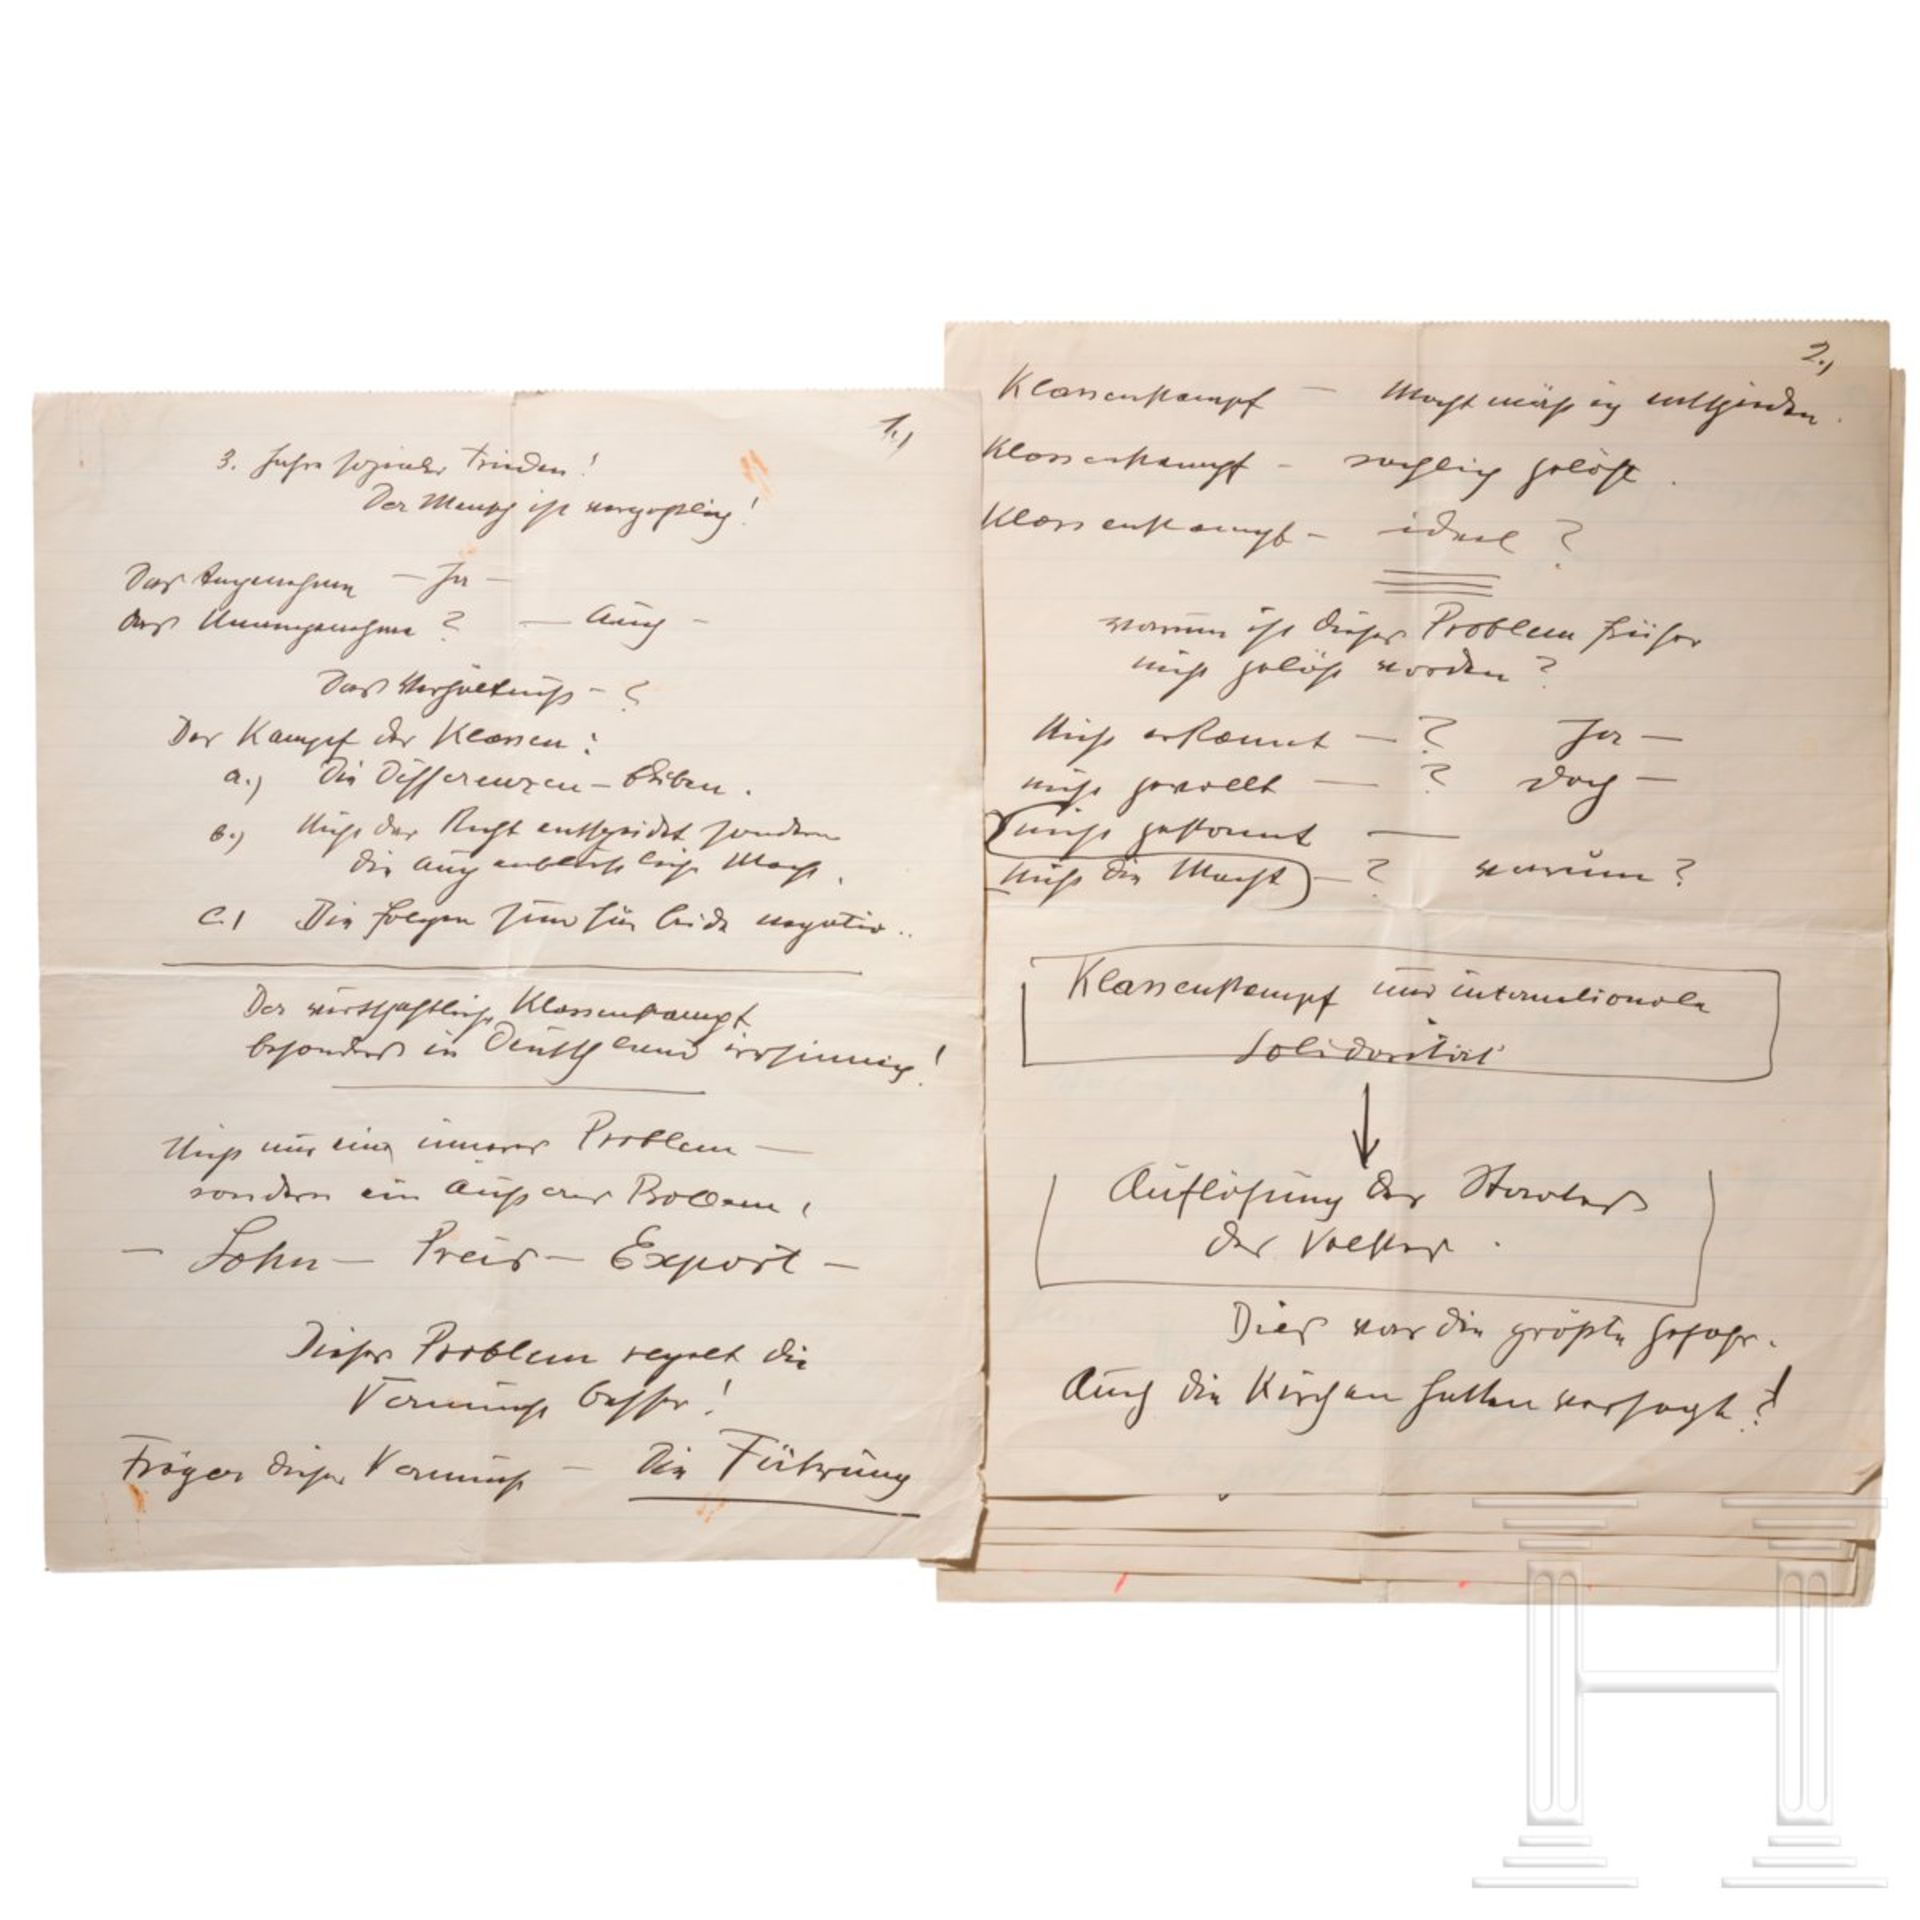 1.)
3. Jahre sozialer Frieden!
Der Mensch ist vergeßlich!
Das Angenehme — Ja —
das Unangenehme? — Auch —
Das Verhältnis - ?
Der Kampf der Klassen:
a.) Die Differenzen - bleiben.
b.) Nicht das Recht entscheidet sondern
die augenblickliche Macht.
C.) Die Folgen sind für beide negativ..
Der wirtschaftliche Klassenkampf
besonders in Deutschland irrsinnig!
Nicht nur ein inneres Problem —
sondern ein äußeres Problem,
— Lohn — Preis — Export —
Dieses Problem regelt die
Vernunft besser!
Träger dieser Vernunft — Die Führung
2.)
Klassenkampf — Machtmäßig entschieden.
Klassenkampf - sachlich gelöst.
Klassenkampf - ideal?
warum ist dieses Problem früher
nicht gelöst worden?
Nicht erkannt — ? Ja —
nicht gewollt — ? doch —
nicht gekonnt —
Nicht die Macht — ? warum?
Klassenkampf und internationale
Solidarität
Auflösung des Staates
des Volkes.
Dies war die größte Gefahr.
Auch die Kirchen hatten versagt?!